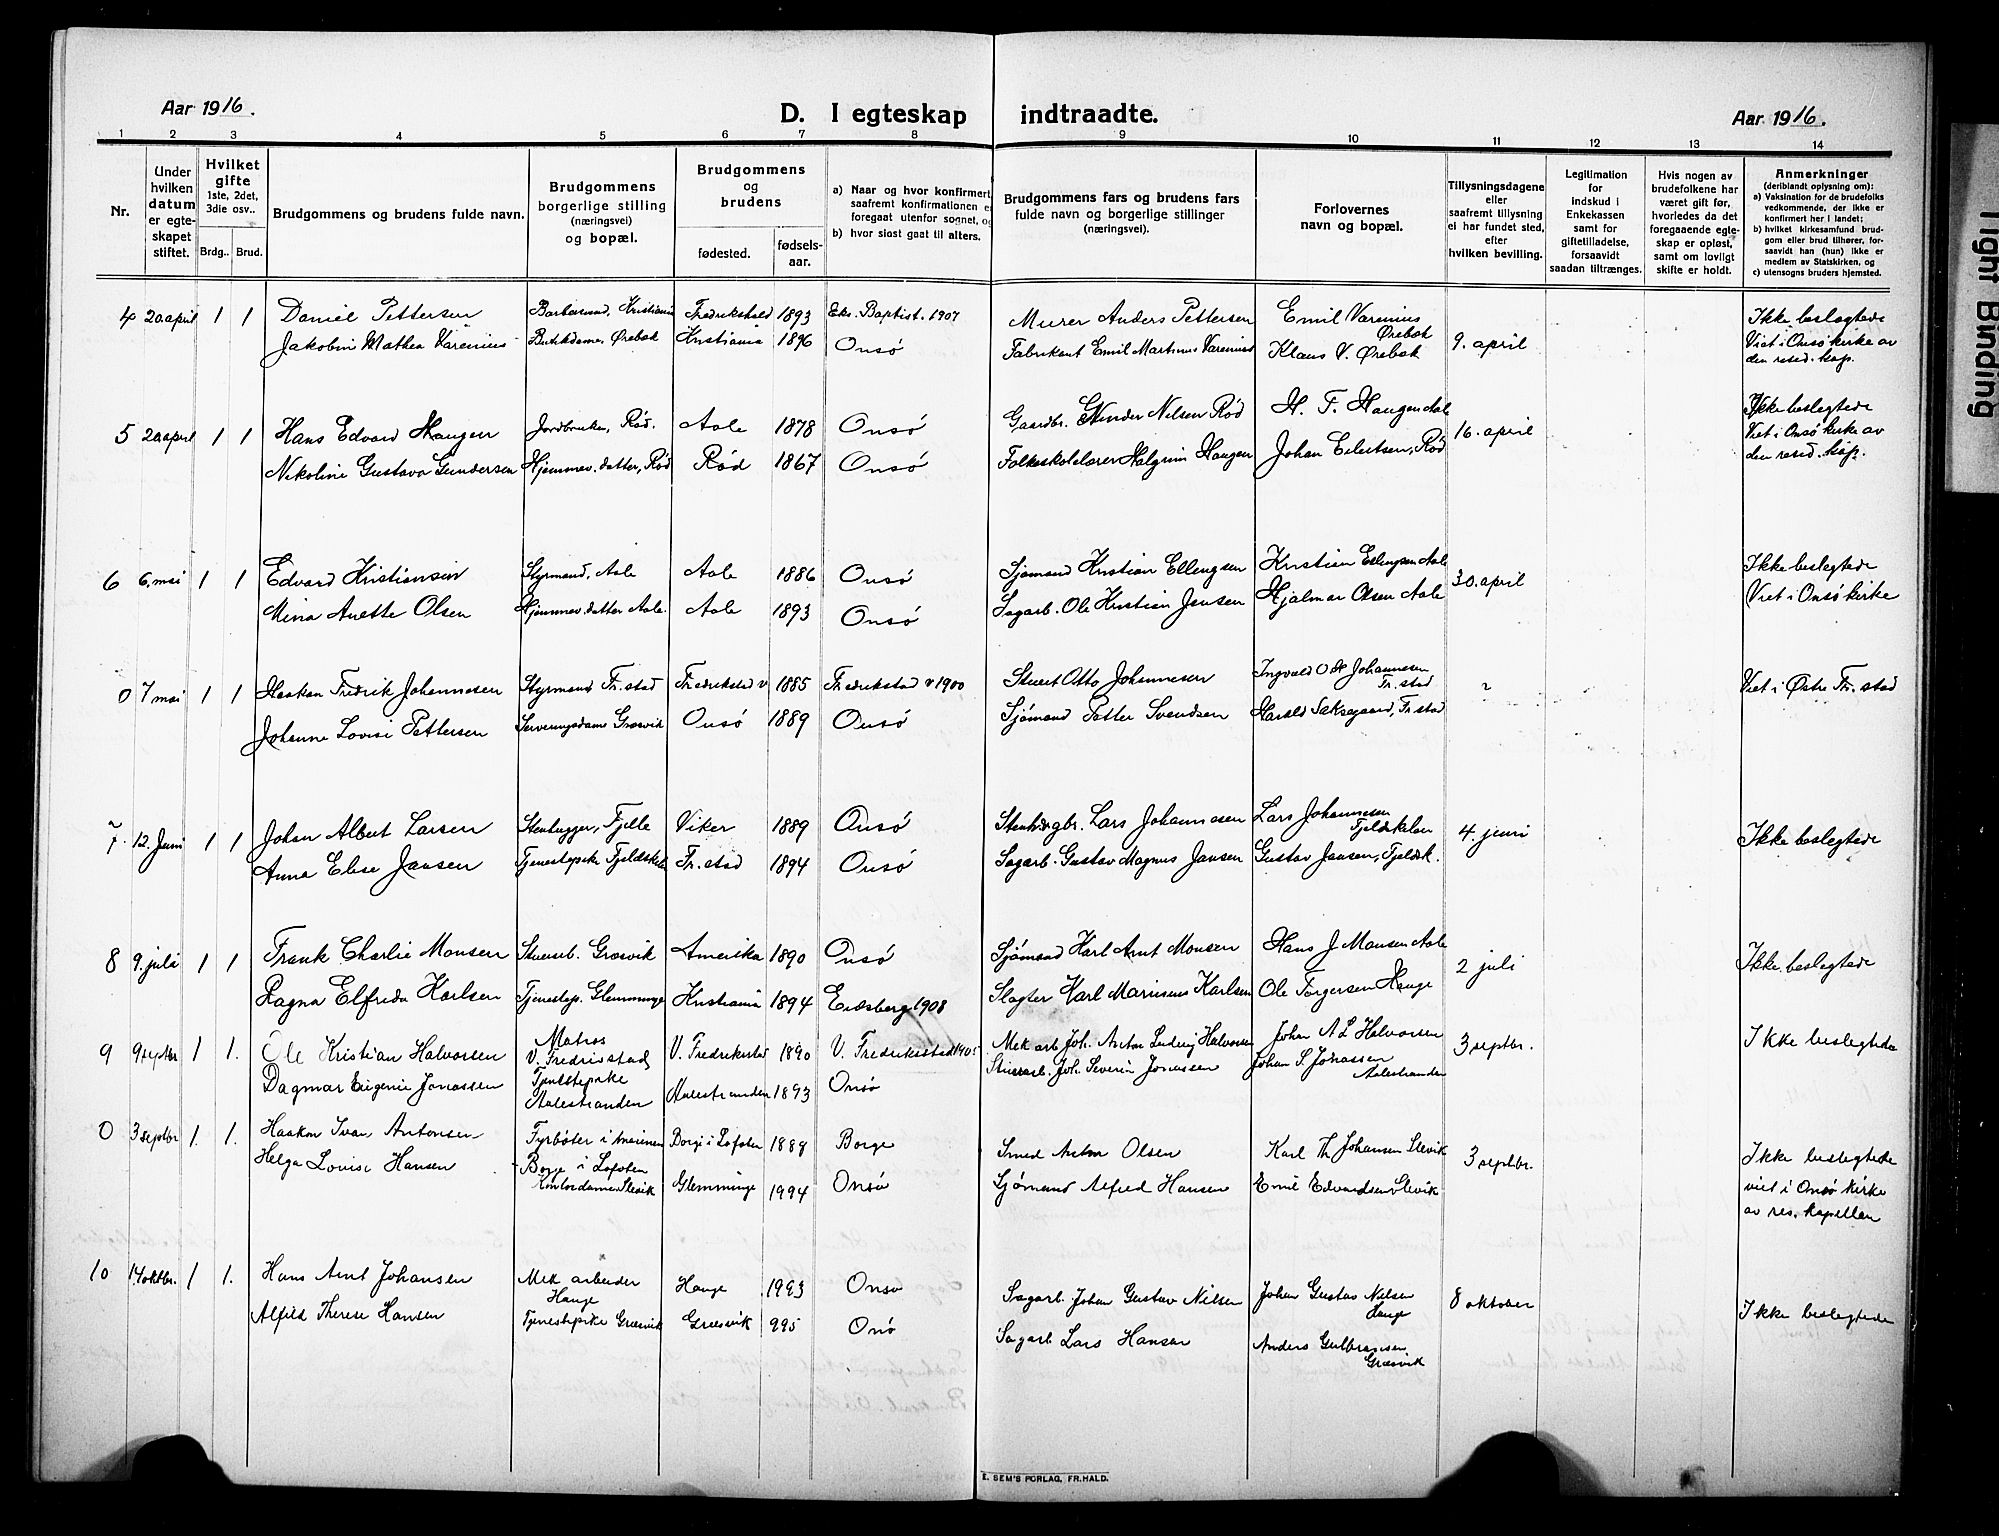 Aar 1916.
D. I egteskap indtraadte.
Aar 1916.
1 2 3 4 5 6 7 8 9 10 11 12 13 14
Nr.
Under hvilken datum er egteskapet stiftet.
Hvilket gifte 1ste, 2det, 3die osv..
Brdg.. Brud.
Brudgommens og brudens fulde navn.
Brudgommens borgerlige stilling (næringsvei) og bopæl.
Brudgommens og brudens
fødested.
fødselsaar.
a) Naar og hvor konfirmert, saafremt konfirmationen e foregaat utenfor sognet, og
b) hvor sidst gaat til alters.
Brudgommens fars og brudens fars fulde navn og borgerlige stillinger (næringsvei).
Forlovernes navn og bopæl.
Tillysningsdagene eller saafremt tillysning ei har fundet sted, efter hvilken bevilling.
Legitimation for indskud i Enkekassen samt for giftetilladelse, forsaavidt saadan tiltrænges.
Hvis nogen av brudefolkene har været gift før, hvorledes da det foregaaende egteskap er opløst, samt om lovligt skifte er holdt.
Anmerkninger (deriblandt oplysning om): a) Vaksination for de brudefolks vedkommende, der ikke er konfirmert her i landet; b) hvilket kirkesamfund brudgom eller brud tilhører, forsaavidt han (hun) ikke er medlem av Statskirken, og c) utensogns bruders hjemsted.
4 20 april 1 1 Daniel Pettersen Kristiania Fredrikshald 1893 Eks. Baptist. 1907 Murer Anders Pettersen Emil Varenius Ørebæk 9. april Ikke beslegtede
Jakobine Mathea Varenius Butikdame, Ørebæk Kristiania 1896 Onsø Fabrikant Emil Martinus Varenius Klaus V. Ørebæk Viet i Onsø kirke av den resid. kap.
5 20 april 1 1 Hans Edvard Haugen Jordbruker, Rød. Aale 1878 Onsø Gaardbr. Gunder Nilsen Rød H. F. Haugen Aale 16. april Ikke beslegtede
Nikoline Gustava Gundersen Hjemmev. datter, Rød Rød 1867 Onsø Folkeskolelærer Halgrim Haugen Johan Eilertsen, Rød Viet i Onsø kirke av den resid. kap.
6 6. mai 1 1 Edvard Kristiansen Styrmand, Aale Aale 1886 Onsø Sjømand Kristian Ellengsen Kristian Ellengsen Aale 30. april Ikke beslegtede
Mina Anette Olsen Hjemmev. datter Aale. Aale 1893 Onsø Sagarb. Ole Kristian Jensen Hjalmar Olsen Aale Viet i Onsø kirke
0 7 mai 1 1 Haakon Fredrik Johannesen Styrmand Fr.stad Fredrikstad v 1885 Fredrikstad v 1900 Stuert Otto Johannesen Ingvald O. Johannesen Fr.stad Viet i Østre Fr.stad
Johanne Lovise Pettersen Serveringsdame Græsvik Onsø 1889 Onsø Sjømand Petter Svendsen Harald Saksegaard, Fr.stad
7 12. Juni 1 1 Johan Albert Larsen Stenhugger, Fjelle Viker 1889 Onsø Stenhugbr. Lars Johannesen Lars Johannesen Fjeldskilen 4. juni Ikke beslegtede
Anna Elise Jansen Tjenestepike Fjeldskilen Fr.stad 1894 Onsø Sagarb. Gustav Magnus Jansen Gustav Jansen, Fjeldsk.
8 9. juli 1 1 Frank Charlie Monsen Stuerarb. Græsvik Amerika 1890 Onsø Sjømand Karl Arnt Monsen Hans J Monsen Aale 2 juli Ikke beslegtede
Ragna Elfrida Karlsen Tjenestep. Glemminge Kristiania 1894 Eidsberg 1908 Slagter Karl Marinius Karlsen Ole Torgersen Hauge
9 9 septbr 1 1. Ole Kristian Halvorsen Matros V. Fredriksstad V. Fredrikstad 1890 V. Fredriksstad 1905 Mek arb. Joh. Anton Ludvig Halvorsen Johan A L Halvorsen 3 septbr. Ikke beslegtede
Dagmar Eugenie Jonassen Tjenestepike Aalestranden Aalestranden 1893 Onsø Stuerarb. Joh. Severin Jonassen Johan S. Jonassen Aalestranden
0 3 septbr 1. 1. Haakon Ivar Antonsen Fyrbøter i marinen Borge i Lofoten Borge i Lofoten 1888 Borge Smed Anton Olsen Karl Th Johansen Slevik 3 septbr. Ikke beslegtede
Helga Lovise Hansen Kontordame Slevik Glemminge 1994 Onsø Sjømand Alfred Hansen Emil Edvardsen Slevik viet i Onsø kirke av res. kapellan
10 14 oktbr. 1 1. Hans Arnt Johansen Mek arbeider Hauge Hauge 1993 Onsø Sagarb. Johan Gustav Nilsen Johan Gustav Nilsen Hauge 8 oktober Ikke beslegtede
Alfild Therese Hansen Tjenestepike Græsvik Græsvik 995 Onø Sagarb Lars Hansen Anders Gulbransen Græsvik
E. SEM'S FORLAG, FR.HALD.
Tight Binding